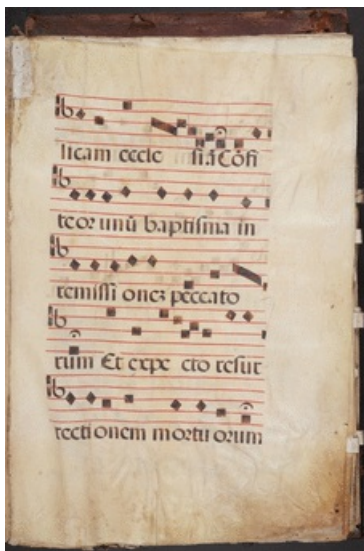 licam eccle siā Cōfi
teor unū baptisma in
remissi onez peccato
rum Et expe cto resur
recti onem mortu orum